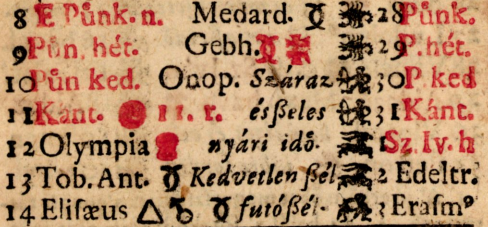 8 E Půnk. n. Medard. 28 Půnk.
9 Půn. hét. Gebh. 29 P. hét.
10 Půn ked. Onop. Száraz 30 P. ked
11 Kánt. 11. r. ésßeles 31 Kánt.
12 Olympia nyári idő. 1 Sz. Iv. h
13 Tob. Ant. Kedvetlen ßél 2 Edeltr.
14 Eliſæus futóßél. 3 Eraſmꝰ